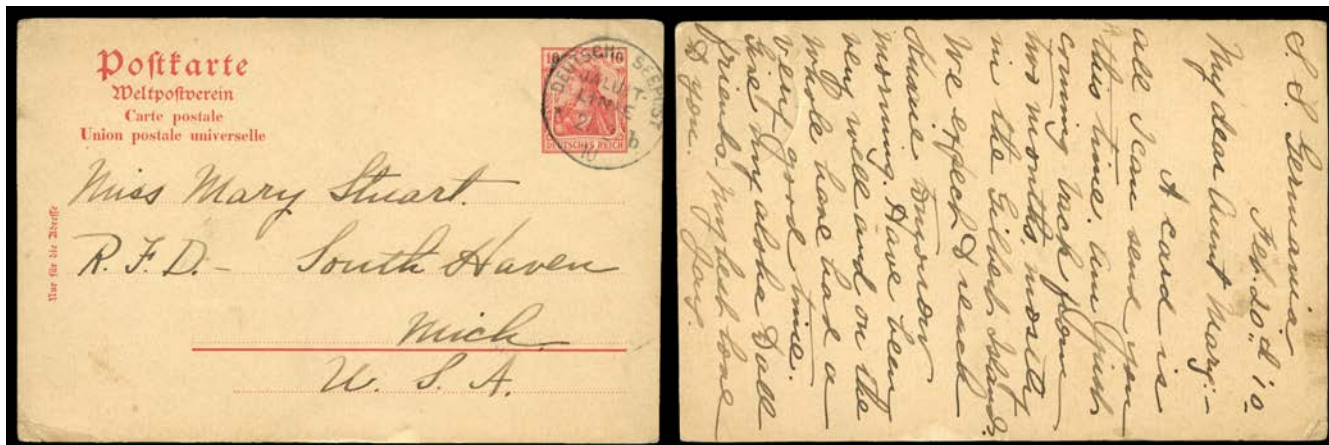 Postkarte
Weltpostverein
Carte postale
Union postale universelle
10 10
DEUTSCHES REICH
DEUTSCHE SEEPOST
JALUIT-
LINIE
10
b
Nur für die Adresse
Miss Mary Stuart.
R. F. D. - South Haven
Mich.
U. S. A.
S. S. Germania
Feb. 20. '10
My dear Aunt Mary:-
A card is
all I can send you
this time. Am just
coming back from
two months, mostly
in the Gilbert Islands.
We expect to reach
Kusaie tomorrow
morning. Have been
very well and on the
whole have had a
very good time.
Give my aloha to all
friends. My best love
to you.